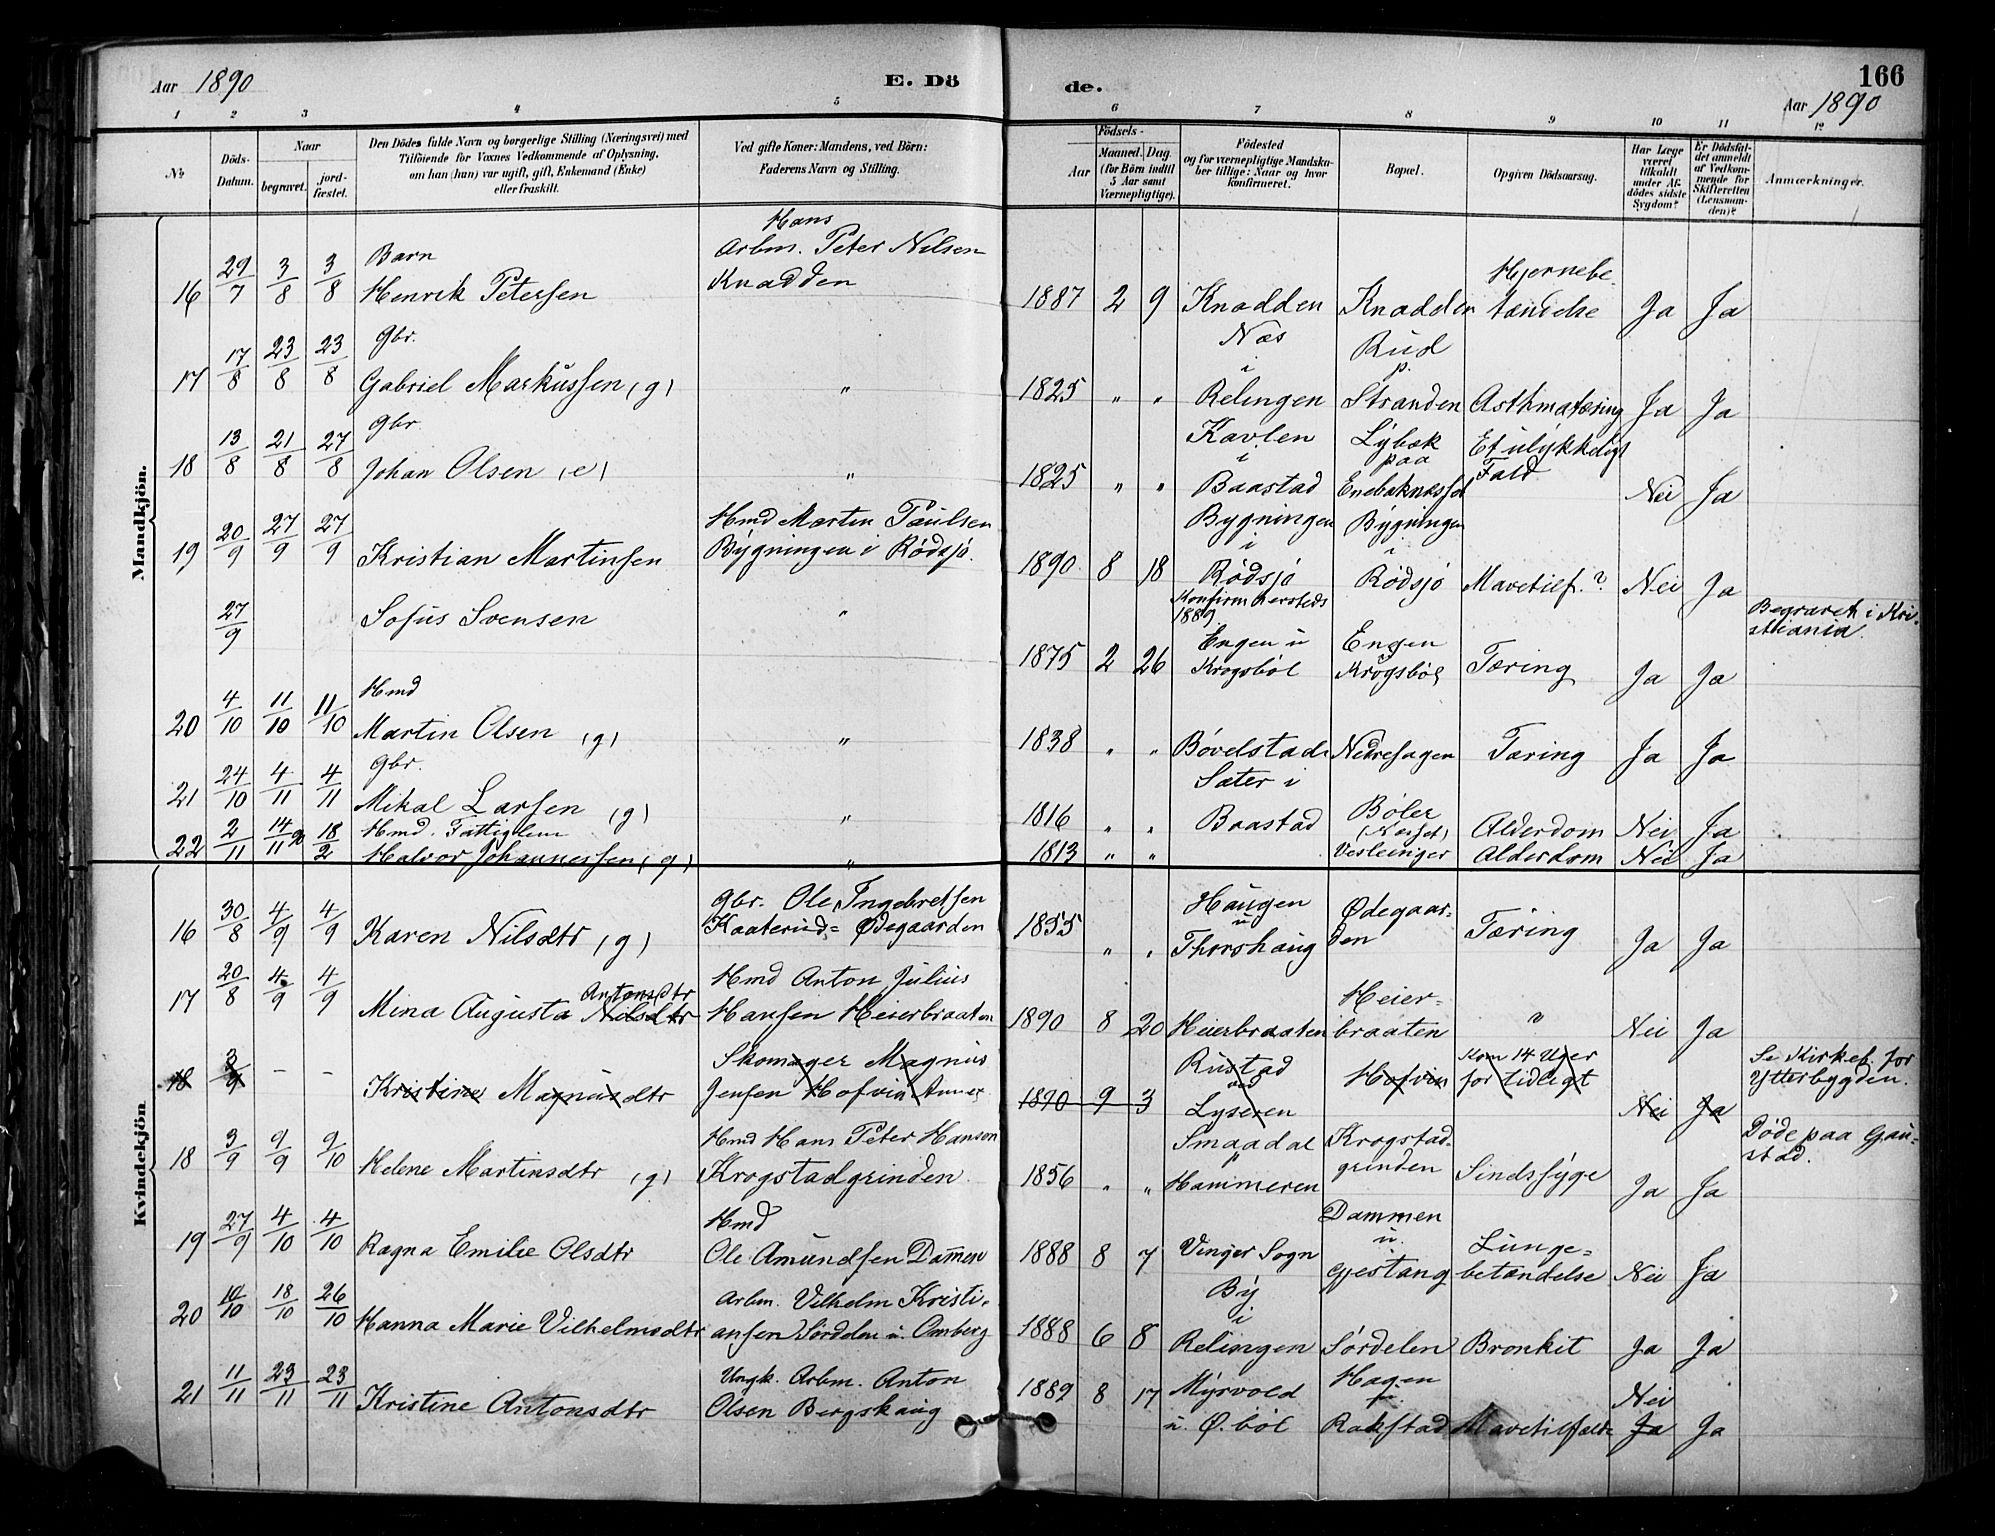 Aar 1890
E. Dö
de.
166
Aar 1890
1 2 3 4 5 6 7 8 9 10 11 12
No
Döds-Datum.
Naar
begravet.
jord-fæstet.
Den Dödes fulde Navn og borgerlige Stilling (Næringsvei) med
Tilföiende for Voxnes Vedkommende af Oplysning,
om han (hun) var ugift, gift, Enkemand (Enke)
eller fraskilt.
Ved gifte Koner: Mandens, ved Börn:
Faderens Navn og Stilling.
Födsels-
Aar
Maaned. Dag.
(for Börn indtil
5 Aar samt
Værnepligtige).
Födested
og for værnepligtige Mandska-
ber tillige: Naar og hvor
konfirmeret.
Bopæl.
Opgiven Dödsaarsag.
Har Læge
været
tilkaldt
under Af-
dödes sidste
Sygdom?
Er Dödsfal-
det anmeldt
af Vedkom-
mende for
Skifteretten
(Lensman-
den)?
Anmærkninger.
Mandkjön.
16 29/7 3/8 3/8 Barn
Henrik Petersen
Hans
Arbm. Peter Nilsen
Knadden
1887 2 9 Knadden Knadden Hjernebe-
tændelse Ja Ja
17 17/8 23/8 23/8 Gbr.
Gabriel Markussen (g) "
1825 " " Næs
i
Relingen
Rud
p.
Stranden Asthmatæring Ja Ja
18 13/8 21/8 27/8 Gbr.
Johan Olsen (e) "
1825 " " Kavlen
i
Baastad
Lybæk
paa
Enebaknesset
Et ulykkeligt
Fald Nei Ja
19 20/9 27/9 27/9
Kristian Martinsen
Hmd Martin Paulsen
Bygningen i Rödsjö.
1890 8 18 Bygningen
i
Rödsjö
Bygningen
i
Rödsjö Mavetilf. ? Nei Ja
27/9 Sofus Svensen "
1875 2 26 Konfirm
1889
Engen u
Krogsböl
Engen
u
Krogsböl Tæring Ja Ja
Begravet i Kri-
stiania.
20 4/10 11/10 11/10 Hmd
Martin Olsen (g) "
1838 " " Bövelstad Nedrehagen Tæring Ja Ja
21 24/10 4/11 4/11 Gbr.
Mikal Larsen (g) "
1816 " " Sæter i
Baastad
Böler
(Næsset) Alderdom Nei Ja
22 2/11 14/11 18/2 Hmd. Fattiglem
Halvor Johannessen (g) "
1813 " " Vesleenger Alderdom Nei Ja
Kvindekjön
16 30/8 4/9 4/9
Karen Nilsdtr (g)
Gbr. Ole Ingebretsen
Kaaterud= Ødegaarden
1855 " " Haugen
u
Thorshaug
Ødegaar-
den Tæring Ja Ja
17 20/8 4/9 4/9
Mina Augusta Nilsdtr Antonsdtr
Hmd Anton Julius
Hansen Heierbraaten
1890 8 20 Heierbraaten
Heier-
braaten ? Nei Ja
18 3/9 - -
Kristine Magnusdtr
Skomager Magnus
Jensen Hofvin
1890 9 3 Rustad
ved
Lyseren
Hofvin
Kom 14 Uger
for tidligt Nei Ja
Se Kirkeb. for
Ytterbygden.
18 3/9 9/9 9/10
Helene Martinsdtr (g)
Hmd Hans Peter Hansen
Krogstadgrinden.
1856 " " Smaadal
p
Hammeren
Krogstad-
grinden Sindssyge Ja Ja
Döde paa Gau-
stad.
19 27/9 4/10 4/10
Ragna Emilie Olsdtr
Hmd
Ole Amundsen Dammen
1888 8 7 Vinger Sogn
Dammen
u.
Gjestang
Lunge=
betændelse Nei Ja
20 10/10 18/10 26/10
Hanna Marie Vilhelmsdtr
Arbm. Vilhelm Kristi-
ansen Sördelen u. Omberg
1888 6 8 By
i
Relingen Sördelen Bronkit Ja Ja
21 11/11 23/11 23/11
Kristine Antonsdtr
Ungk. Arbm. Anton
Olsen Bergskaug
1889 8 17 Myrvold
u. Ø. böl
Hagen
u.
Rakstad Mavetilfælde Nei
Ja Ja